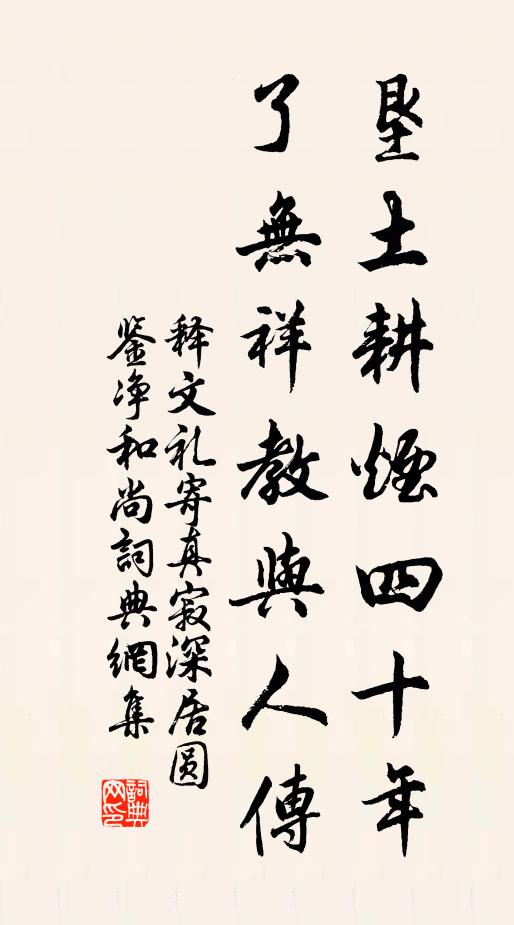 垦土耕煙四十年
了無祥教與人傳
释文礼寄真寂深居圆
鉴净和尚詞典網集
詞典網印